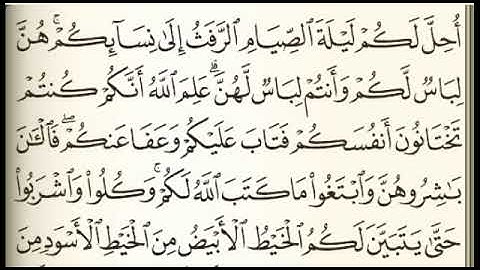 أُحِلَّ لَكُمْ لَيْلَةَ ٱلصِّيَامِ ٱلرَّفَثُ إِلَىٰ نِسَآئِكُمْ ۚ هُنَّ
لِبَاسٌ لَّكُمْ وَأَنتُمْ لِبَاسٌ لَّهُنَّ ۗ عَلِمَ ٱللَّهُ أَنَّكُمْ كُنتُمْ
تَخْتَانُونَ أَنفُسَكُمْ فَتَابَ عَلَيْكُمْ وَعَفَا عَنكُمْ ۖ فَٱلْـَٰٔنَ
بَـٰشِرُوهُنَّ وَٱبْتَغُوا۟ مَا كَتَبَ ٱللَّهُ لَكُمْ ۚ وَكُلُوا۟ وَٱشْرَبُوا۟
حَتَّىٰ يَتَبَيَّنَ لَكُمُ ٱلْخَيْطُ ٱلْأَبْيَضُ مِنَ ٱلْخَيْطِ ٱلْأَسْوَدِ مِنَ